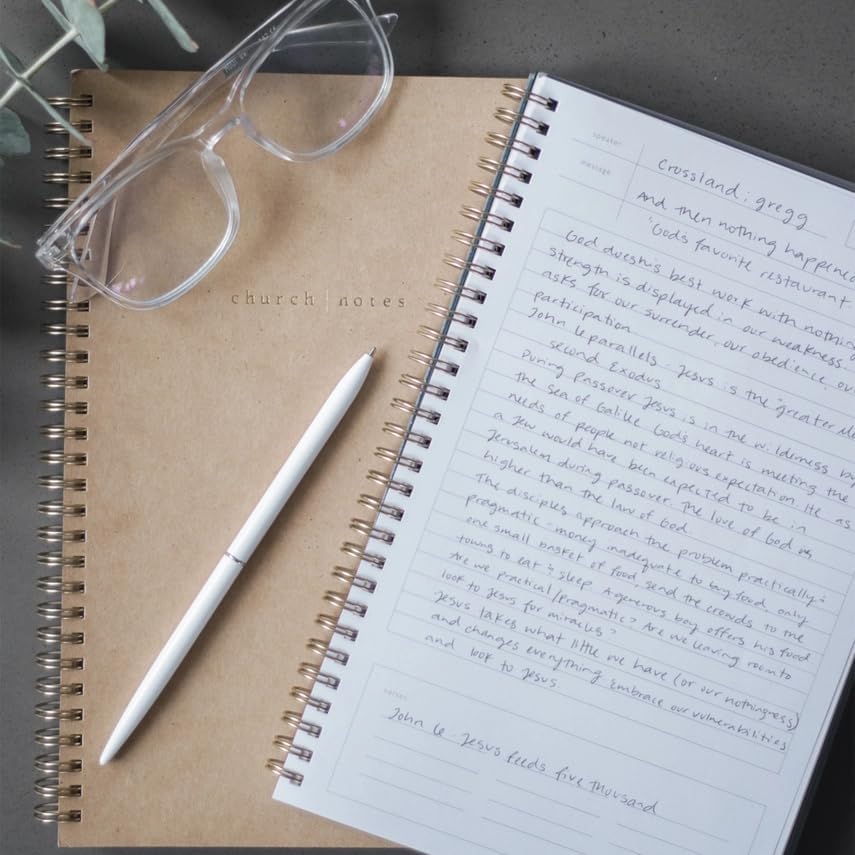 church | notes
speaker
Crossland; gregg
message
And then nothing happened
"God's favorite restaurant
God does his best work with nothing
strength is displayed in our weakness.
asks for our surrender, our obedience, our
participation
John 6 parallels. Jesus is the "greater
second Exodus
During Passover Jesus is in the wilderness by
the Sea of Galilee God's heart is meeting the
needs of people not religious expectation. He as
a Jew would have been expected to be in
Jerusalem during passover. The love of God is
higher than the law of God
The disciples approach the problem practically-
pragmatic-money inadequate to buy food only
one small basket of food, send the crowds to the
towns to eat & sleep. A generous boy offers his food
Are we practical/pragmatic? Are we leaving room to
look to Jesus for miracles?
Jesus takes what little we have (or our nothingness)
and changes everything. Embrace our vulnerabilities
and look to Jesus
verses
John 6 - Jesus feeds five thousand